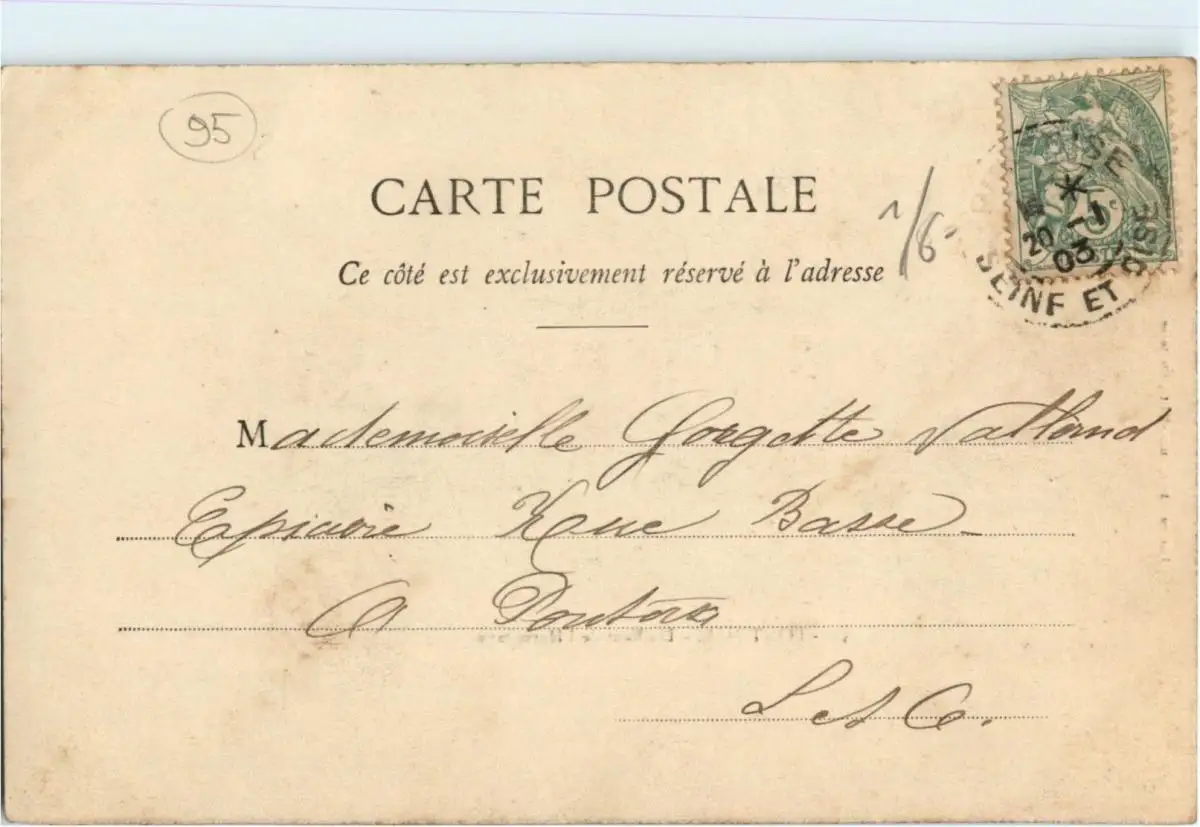 95
CARTE POSTALE
1/6
Ce côté est exclusivement réservé à l'adresse
OISE
20 -1
03
SEINE ET OISE
5
Mademoiselle Gorgette Valland
Epicerie Basse
A Pontoise
S et O.